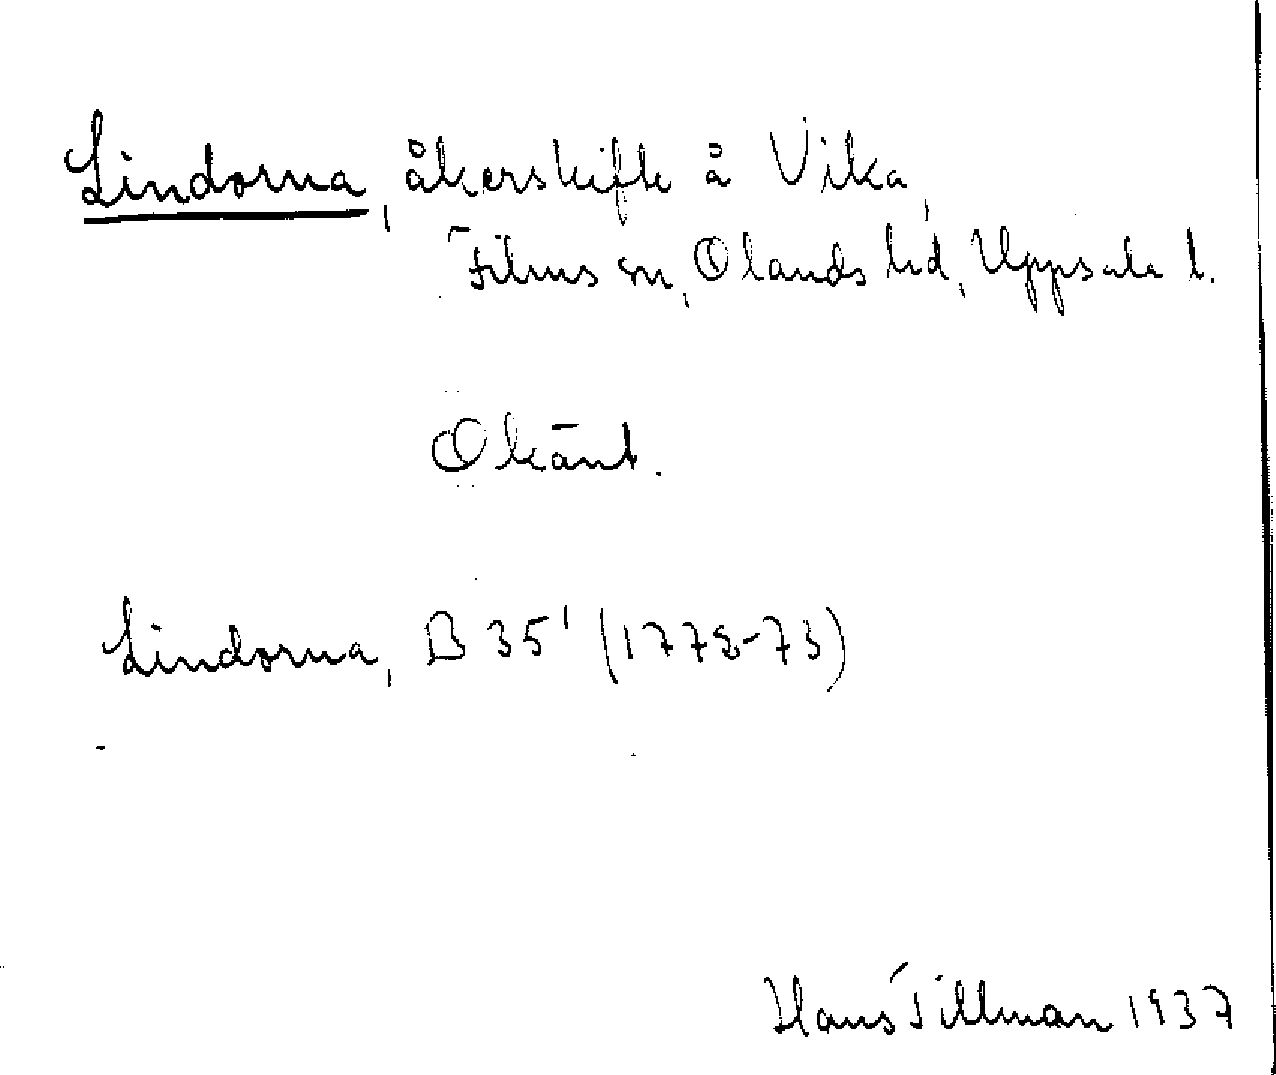 Lindorna, åkerskifte å Vika,
Films sn, Olands hd, Uppsala l.
Okänt.
Lindorna, B 35¹ (1772-73)
Hans Tillman 1937